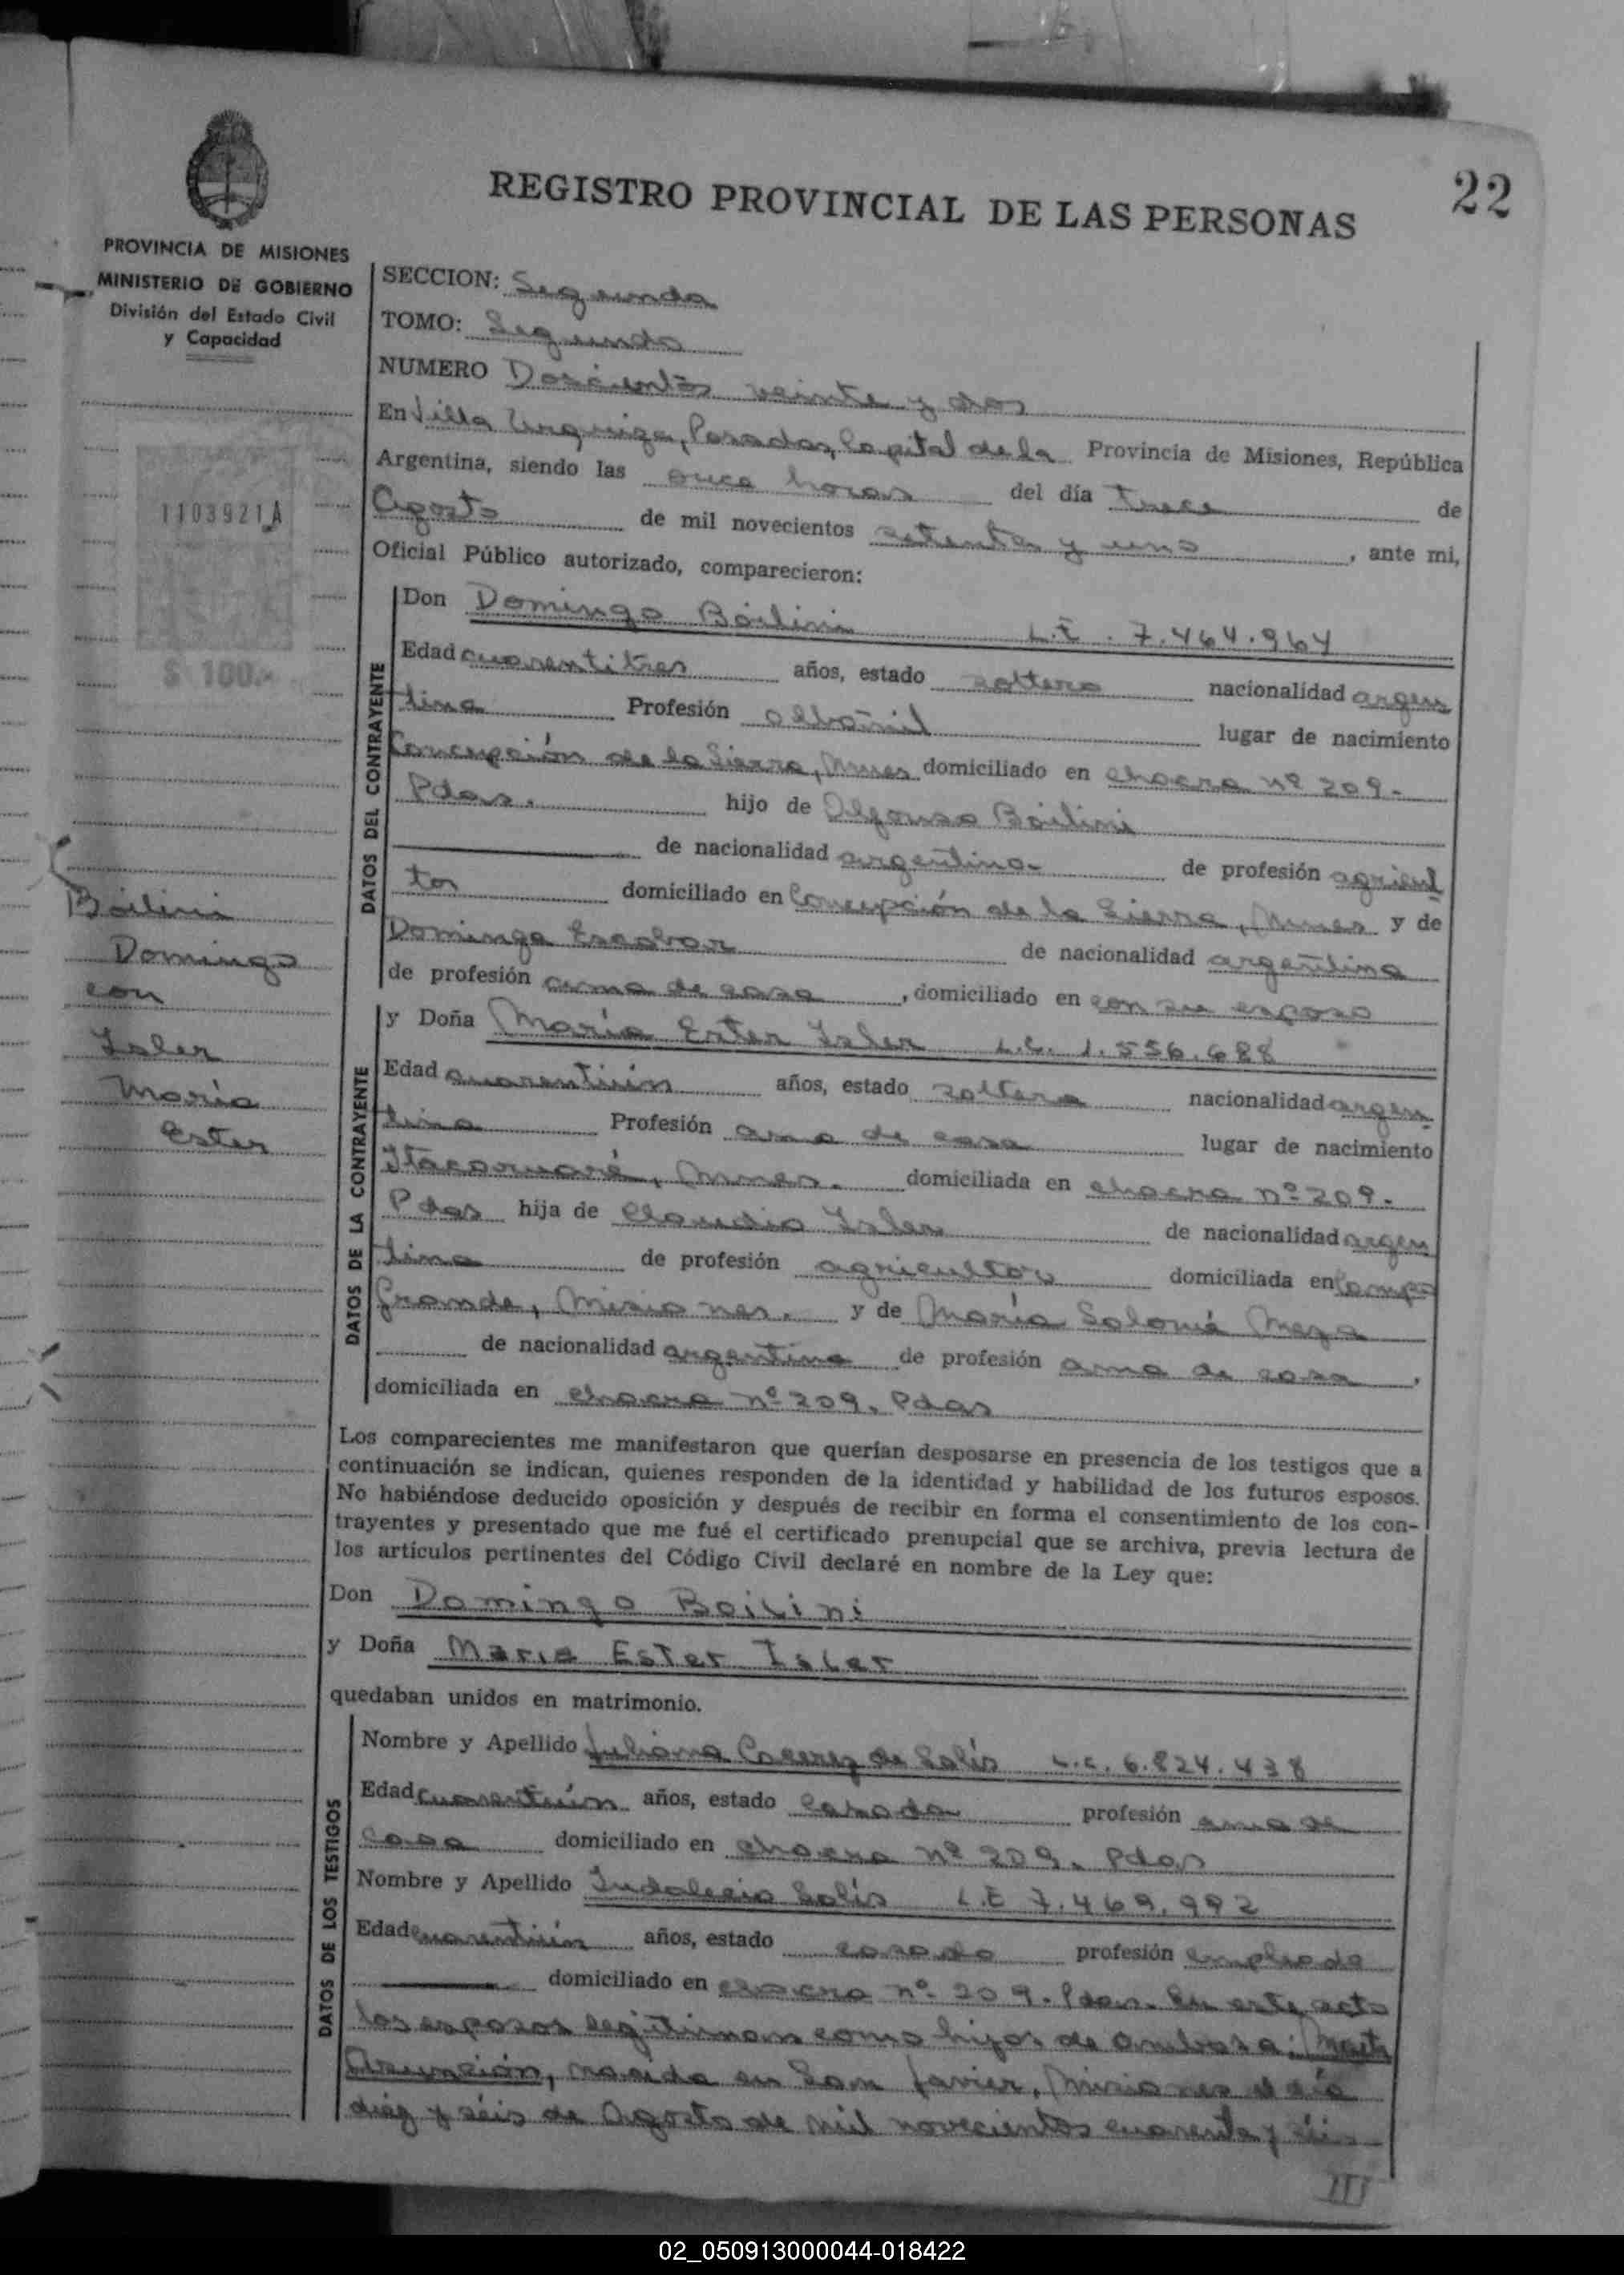 REGISTRO PROVINCIAL DE LAS PERSONAS
22
PROVINCIA DE MISIONES
MINISTERIO DE GOBIERNO
División del Estado Civil
y Capacidad
1103921A
$ 100.-
Boilini
Domingo
con
Isler
María
Ester
SECCION: Segunda
TOMO: Segundo
NUMERO Doscientos veinte y dos
En Villa Urquiza, Posadas, Capital de la Provincia de Misiones, República
Argentina, siendo las once horas del día trece de
Agosto de mil novecientos setenta y uno, ante mi,
Oficial Público autorizado, comparecieron:
DATOS DEL CONTRAYENTE
Don Domingo Boilini L.E. 7.464.964
Edad cuarentitres años, estado soltero nacionalidad argen
tina Profesión albañil lugar de nacimiento
Concepción de la Sierra, Mnes domiciliado en chacra nº 209.-
Pdas. hijo de Alfonso Boilini
de nacionalidad argentino- de profesión agricul
tor domiciliado en Concepción de la Sierra, Mnes y de
Dominga Escobar de nacionalidad argentina
de profesión ama de casa, domiciliado en con su esposo
DATOS DE LA CONTRAYENTE
y Doña María Ester Isler L.C. 1.556.688
Edad cuarentiún años, estado soltera nacionalidad argen
tina Profesión ama de casa lugar de nacimiento
Itacaruaré, Mnes. domiciliada en chacra nº 209.-
Pdas hija de Claudio Isler de nacionalidad argen
tina de profesión agricultor domiciliada en Campo
Grande, Misiones. y de María Salomé Meza
de nacionalidad argentina de profesión ama de casa,
domiciliada en chacra nº 209. Pdas
Los comparecientes me manifestaron que querían desposarse en presencia de los testigos que a
continuación se indican, quienes responden de la identidad y habilidad de los futuros esposos.
No habiéndose deducido oposición y después de recibir en forma el consentimiento de los con-
trayentes y presentado que me fué el certificado prenupcial que se archiva, previa lectura de
los artículos pertinentes del Código Civil declaré en nombre de la Ley que:
Don Domingo Boilini
y Doña Maria Ester Isler
quedaban unidos en matrimonio.
DATOS DE LOS TESTIGOS
Nombre y Apellido Juliana Cacerez de Solís L.C. 6.824.438
Edad cuarentiún años, estado casada profesión ama de
casa domiciliado en chacra nº 209. Pdas
Nombre y Apellido Indalecio Solís L.E 7.469.992
Edad cuarentiún años, estado casado profesión empleado
domiciliado en chacra nº 209. Pdas. En este acto
los esposos legitiman como hijos de ambos a: Marta
Asunción, nacida en San Javier, Misiones el día
diez y séis de Agosto de mil novecientos cuarenta y séis
III
02_050913000044-018422